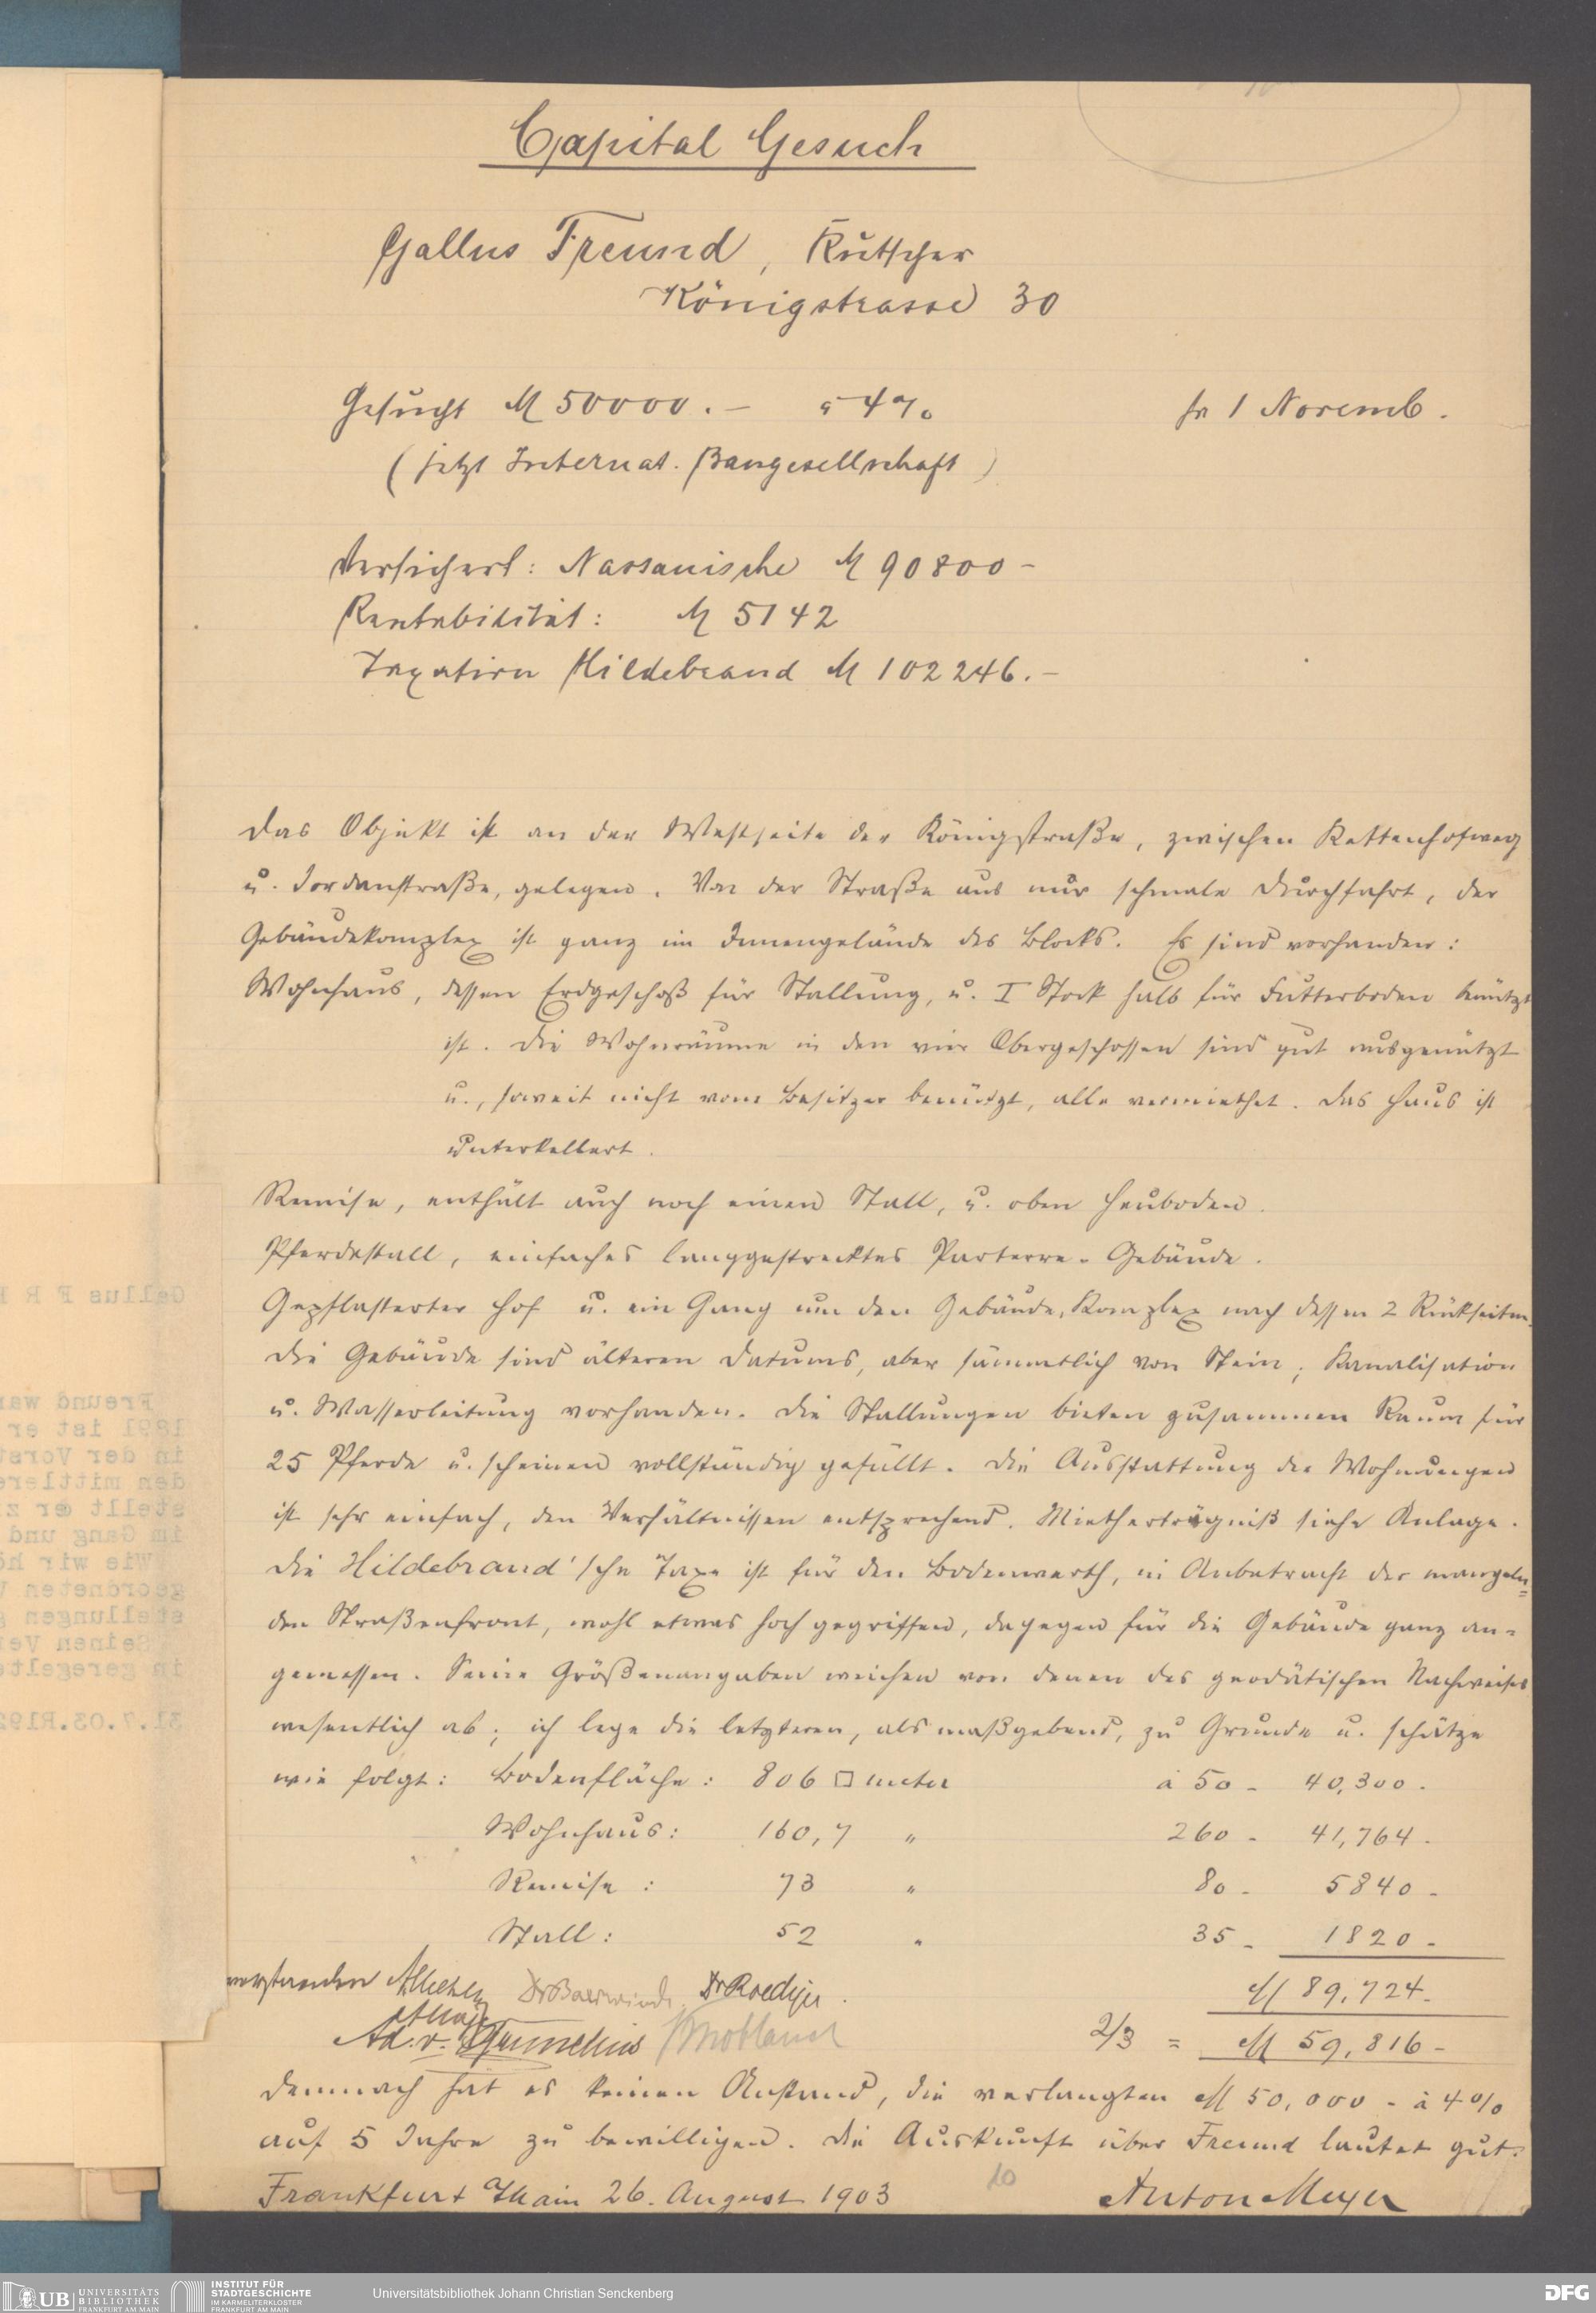 Capital Gesuch
Gallus Freund, Kutscher
Königstrasse 30
Gesucht M 50000.– à 4% pr 1 Novemb.
(jetzt Internat. Baugesellschaft)
Versichert: Nassauische M 90800–
Rentabilität: M 5142
Taxation Hildebrand M 102246.–
Das Objekt ist an der Westseite der Königstraße, zwischen Kettenhofweg
u. Jordanstraße, gelegen. Von der Straße aus nur schmale Durchfahrt, der
Gebäudekomplex ist ganz im Innengelände des Blocks. Es sind vorhanden:
Wohnhaus, dessen Erdgeschoß für Stallung, u. I Stock halb für Futterboden benützt
ist. Die Wohnräume in den vier Obergeschossen sind gut ausgenützt
u., soweit nicht vom Besitzer benützt, alle vermiethet. Das Haus ist
unterkellert.
Remise, enthält auch noch einen Stall, u. oben Heuboden.
Pferdestall, einfaches langgestrecktes Parterre-Gebäude.
Gepflasterter Hof u. ein Gang um den Gebäude-Komplex nach dessen 2 Rückseiten.
Die Gebäude sind älteren Datums, aber sämmtlich von Stein; Kanalisation
u. Wasserleitung vorhanden. Die Stallungen bieten zusammen Raum für
25 Pferde u. scheinen vollständig gefüllt. Die Ausstattung der Wohnungen
ist sehr einfach, den Verhältnissen entsprechend. Mietherträgniß siehe Anlage.
Die Hildebrand'sche Taxe ist für den Bodenwerth, in Anbetracht der mangeln=
den Straßenfront, wohl etwas hoch gegriffen, dagegen für die Gebäude ganz an=
gemessen. Seine Größenangaben weichen von denen des geodätischen Nachweises
wesentlich ab; ich lege die letzteren, als maßgebend, zu Grunde u. schätze
wie folgt: Bodenfläche: 806 □ meter à 50 - 40,300.
Wohnhaus: 160,7 " 260 - 41,764.
Remise: 73 " 80 - 5840 -
Stall: 52 " 35 - 1820 -
M 89,724.
verstanden Dr Baerwindt. Dr Roediger.
2/3 = M 59,816 -
Demnach hat es keinen Anstand, die verlangten M 50,000 - à 4%
auf 5 Jahre zu bewilligen. Die Auskunft über Freund lautet gut.
Frankfurt Main 26. August 1903 Anton Meyer
10
Gallus F R E
Freund war
1891 ist er
in der Vorst
den mittlere
stellt er z
im Gang und
Wie wir hö
geordneten V
stellungen g
Seinen Ver
in geregelte
31.7.03.R192
UB UNIVERSITÄTS BIBLIOTHEK FRANKFURT AM MAIN
INSTITUT FÜR STADTGESCHICHTE IM KARMELITERKLOSTER FRANKFURT AM MAIN
Universitätsbibliothek Johann Christian Senckenberg
DFG